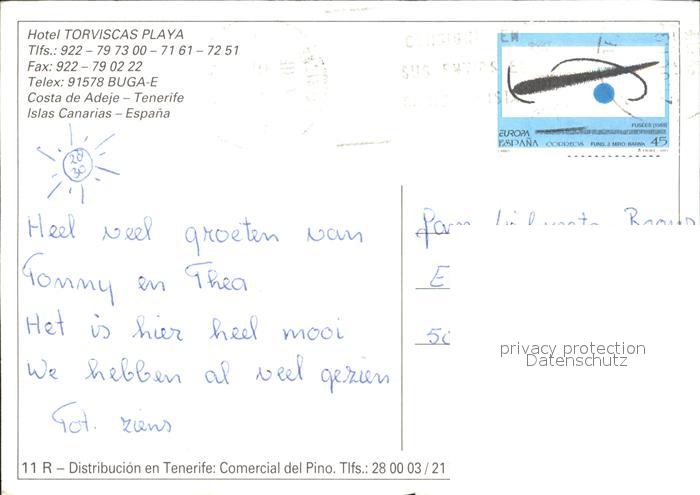 Hotel TORVISCAS PLAYA
Tlfs.: 922 – 79 73 00 – 71 61 – 72 51
Fax: 922 – 79 02 22
Telex: 91578 BUGA-E
Costa de Adeje – Tenerife
Islas Canarias – España
28
30
FUSEES (1959)
EUROPA
ESPAÑA CORREOS FUND. J. MIRO. BARNA. 45
Heel veel groeten van
Tonny en Thea
Het is hier heel mooi
We hebben al veel gezien
Tot. ziens
Fam
E
50
privacy protection
Datenschutz
11 R – Distribución en Tenerife: Comercial del Pino. Tlfs.: 28 00 03 / 21